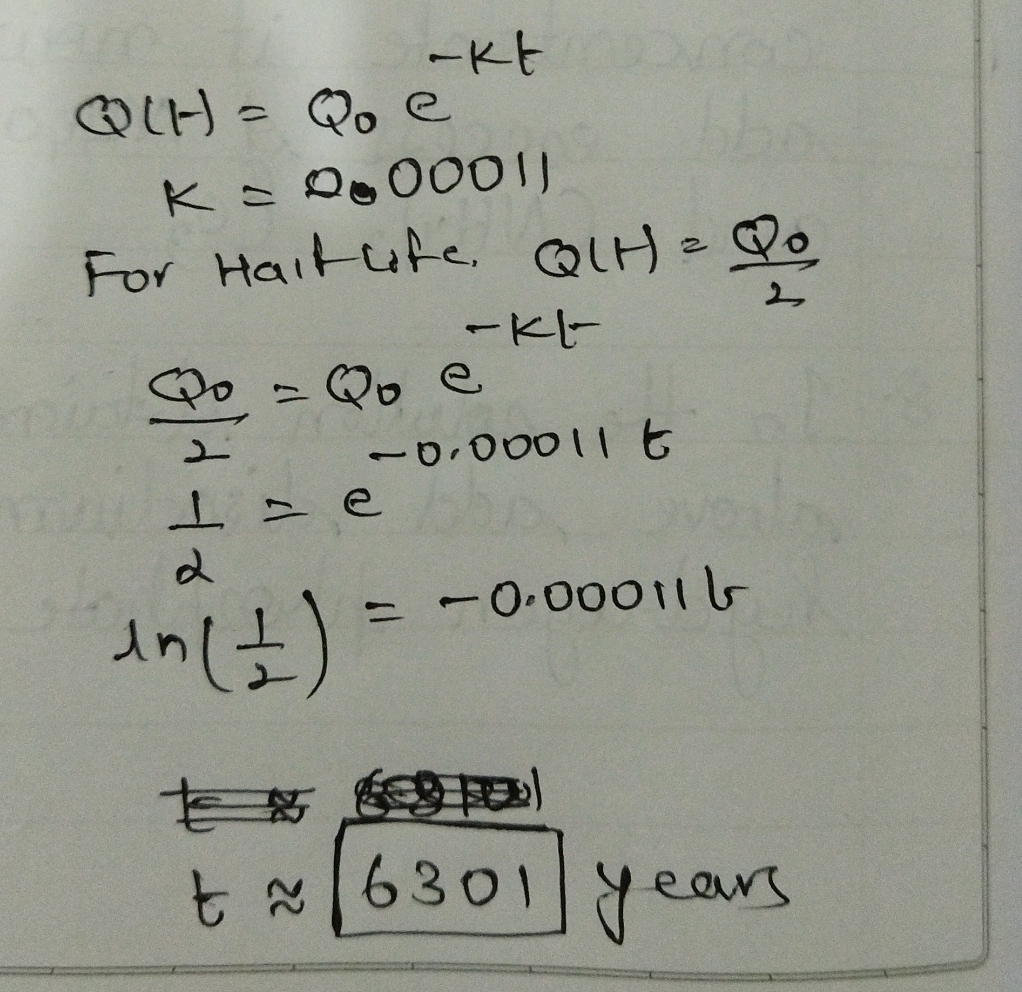 Q(t) = Q₀ e^(-Kt)
K = 0.00011
For Half life. Q(t) = Q₀/2
Q₀/2 = Q₀ e^(-Kt)
1/2 = e^(-0.00011 t)
ln(1/2) = -0.00011t
t ≈
t ≈ 6301 years